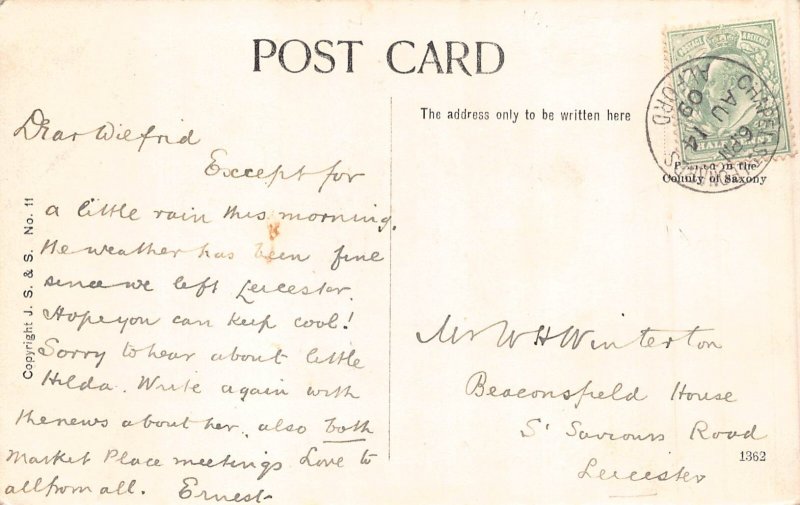 POST CARD
The address only to be written here
Dear Wilfrid
Except for
a little rain this morning,
the weather has been fine
since we left Leicester.
Hope you can keep cool!
Sorry to hear about little
Hilda. Write again with
the news about her, also both
Market Place meetings. Love to
all from all. Ernest
Copyright J. S. & S. No. 11
POSTAGE & REVENUE
HALFPENNY
CHAPEL ST LEONARDS
ALFORD
6 PM
AU 14
09
Printed in the
County of Saxony
Mr W H Winterton
Beaconsfield House
St Saviours Road
Leicester
1362